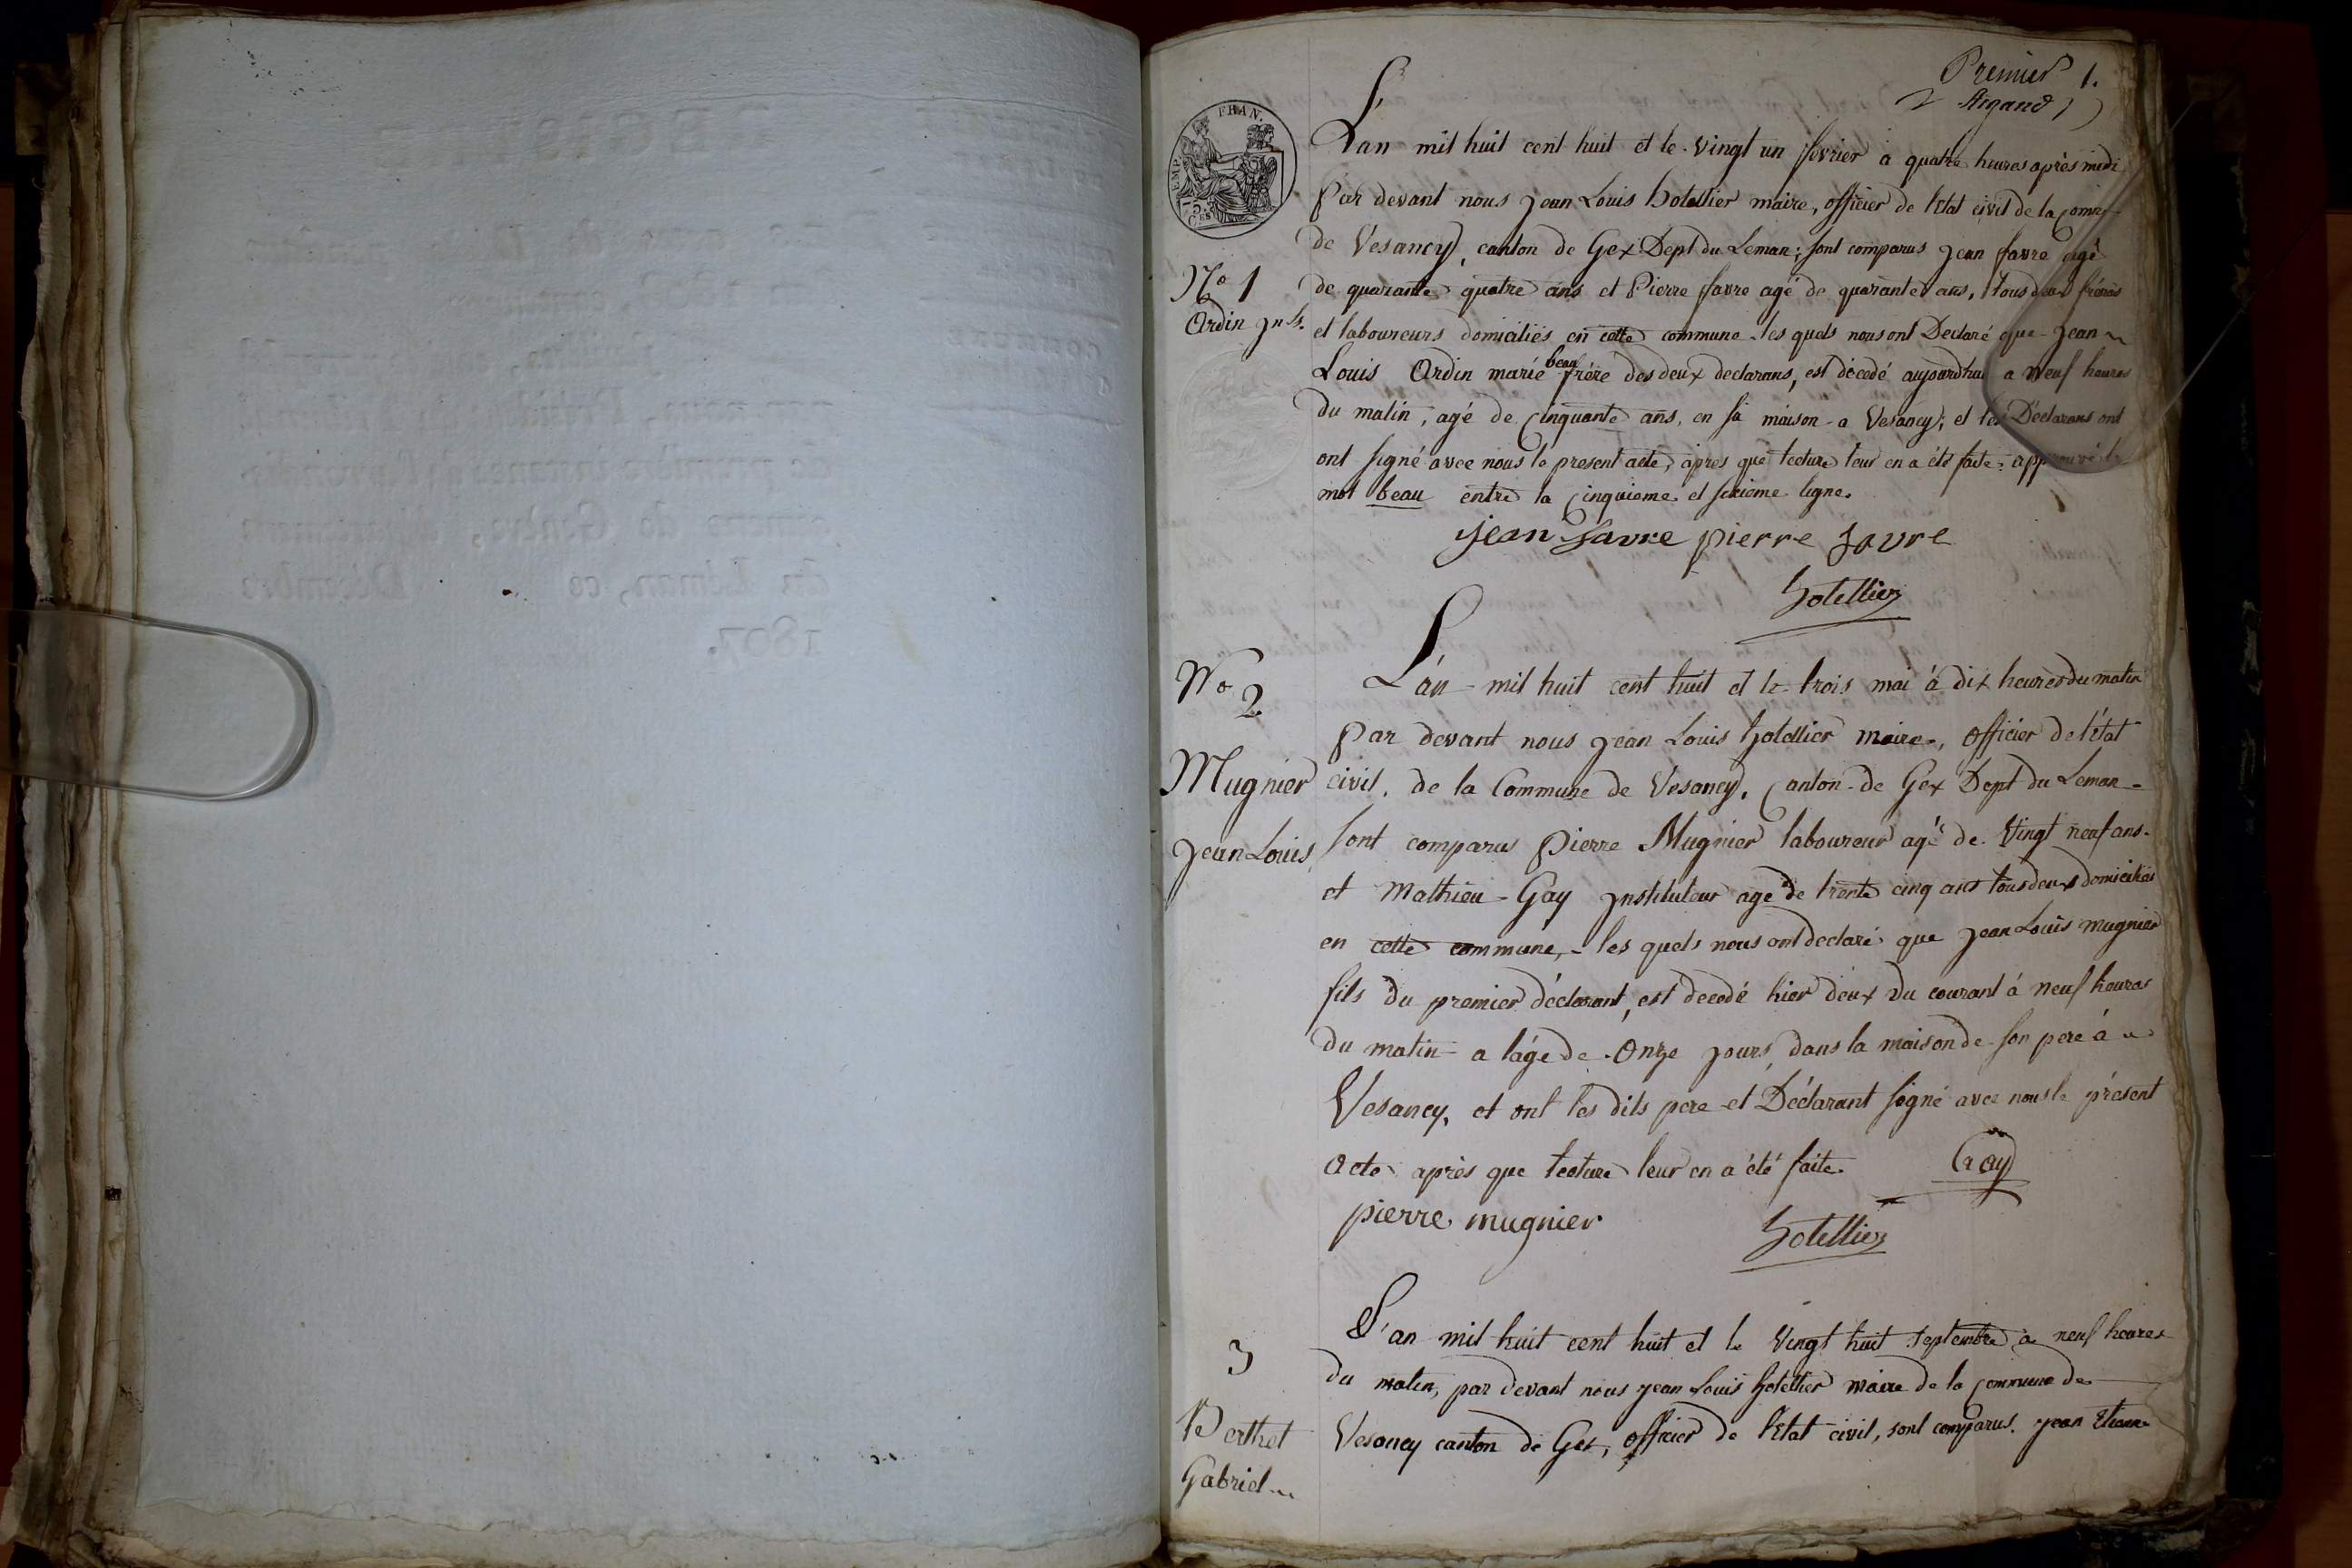 Premier 1.
Argand
EMP. FRAN.
75.
CES
L'an mil huit cent huit et le vingt un fevrier a quatre heures après midi
Par devant nous jean Louis hotellier maire, officier de l'Etat civil de la
de Vesancy, canton de Gex Dept du Leman; sont comparus jean favre agé
No 1
de quarante quatre ans et Pierre favre agé de quarante ans, tous deux fréres
Ordin jn Ls.
et laboureurs domiciliés en cette commune les quels nous ont Declaré que jean
Louis Ordin marié beau frére des deux declarans, est décedé aujourdhui a neuf heures
du matin, agé de Cinquante ans, en sa maison a Vesancy; et les Déclarans ont
ont signé avec nous le present acte, apres que lecture leur en a été faite. approuvé le
mot beau entre la Cinquieme et sixieme ligne.
jean favre pierre favre
hotellier
No 2
L'an mil huit cent huit et le trois mai à dix heures du matin
Par devant nous jean Louis hotellier maire, officier de l'état
Mugnier
civil, de la Commune de Vesancy, Canton de Gex Dept du Leman
jean Louis
sont comparus Pierre Mugnier laboureur agé de Vingt neuf ans
et Mathieu Gay jnstituteur age de trente cinq ans tous deux domiciliés
en cette commune, les quels nous ont declaré que jean Louis mugnier
fils du premier déclarant, est decedé hier deux du courant à neuf heures
du matin a lágé de Onze jours, dans la maison de son pere à
Vesancy, et ont les dits pere et Déclarant signé avec nous le présent
Acte après que lecture leur en a été faite.
Gay
pierre mugnier
hotellier
3
L'an mil huit cent huit et le Vingt huit septembre à neuf heures
du matin, par devant nous jean Louis hotellier maire de la commune de
Perthet
Vesancy canton de Gex, officier de l'Etat civil, sont comparus. jean Etienne
Gabriel